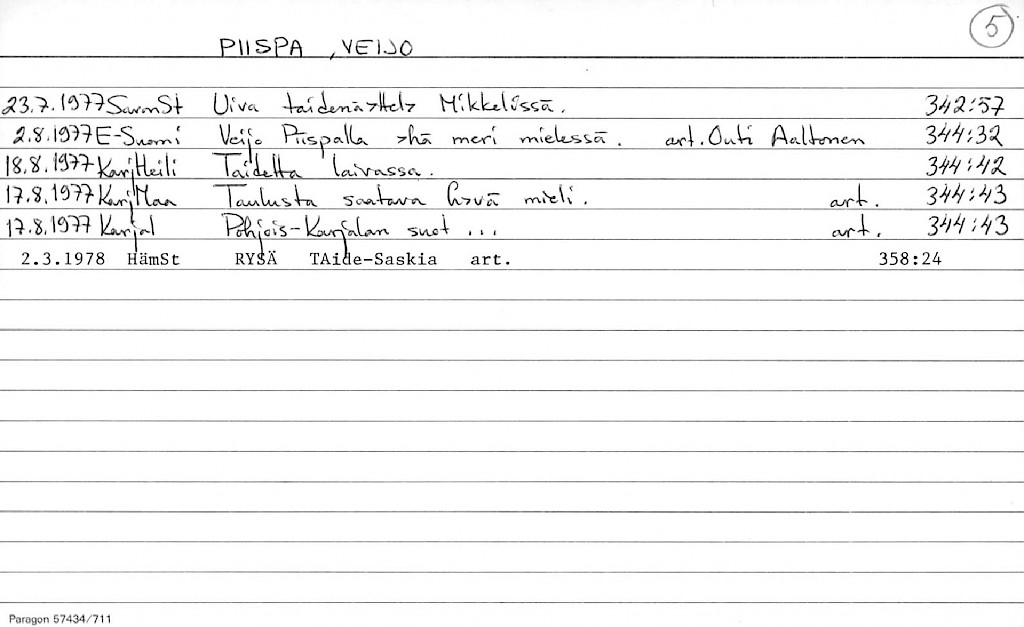 5
PIISPA, VEIJO
23.7.1977 SavonSt Uiva taidenäyttely Mikkelissä. 342:57
2.8.1977 E-Suomi Veijo Piispalla yhä meri mielessä. art. Outi Aaltonen 344:32
18.8.1977 KarjHeili Taidetta laivassa. 344:42
17.8.1977 KarjMaa Taulusta saatava hyvä mieli. art. 344:43
17.8.1977 Karjal Pohjois-Karjalan suot ... art. 344:43
2.3.1978 HämSt RYSÄ TAide-Saskia art. 358:24
Paragon 57434/711